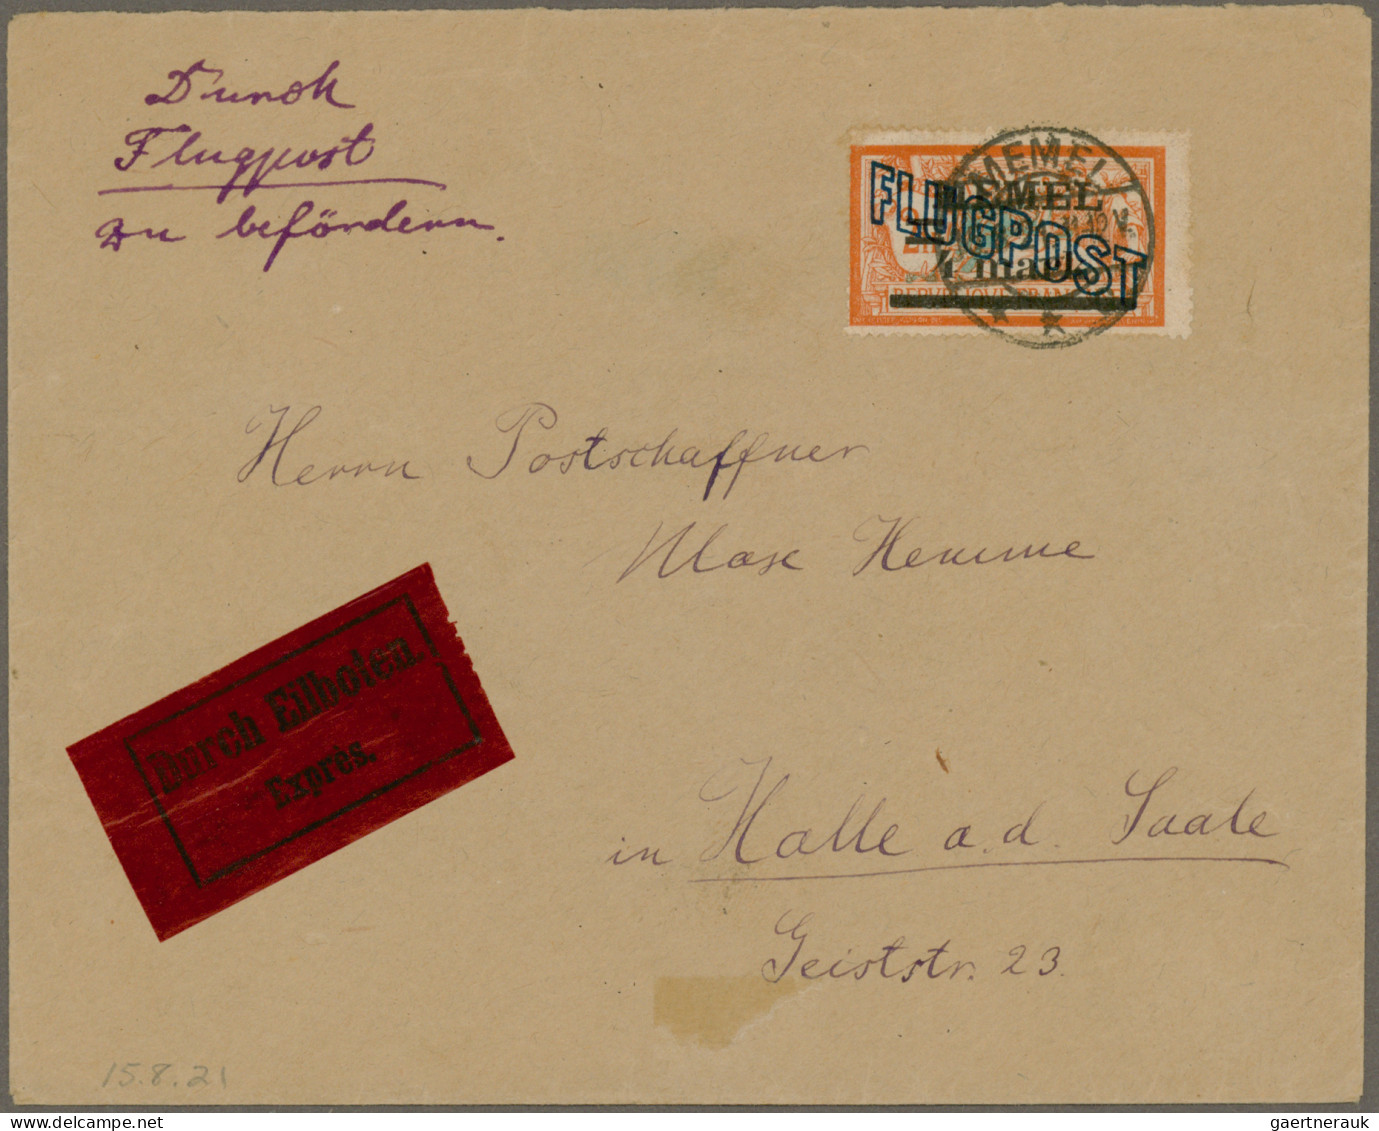 Durch
Flugpost
zu befördern.
MEMEL
MEMEL
FLUGPOST
11-12 V.
4 mark
Herrn Postschaffner
Max Hemme
Durch Eilboten.
Exprès.
in Halle a. d. Saale
Geiststr. 23.
15.8.21
gaertnerauk.com